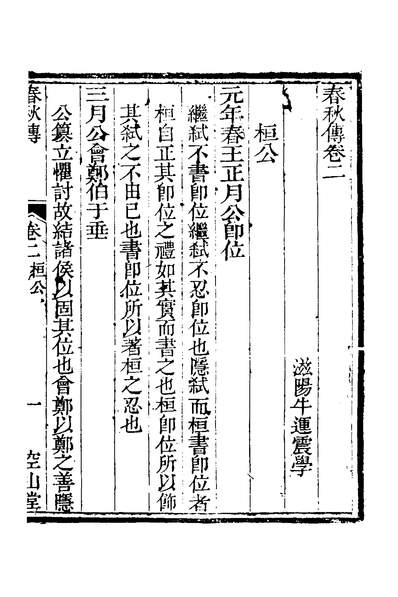 春秋傳卷二
滋陽牛運震學
桓公
元年春王正月公卽位
繼弑不書卽位繼弑不忍卽位也隱弑而桓書卽位者
桓自正其卽位之禮如其實而書之也桓卽位所以飾
其弑之不由已也書卽位所以著桓之忍也
三月公會鄭伯于垂
公簒立懼討故結諸侯以固其位也會鄭以鄭之善隱
春秋傳
卷二桓公
一
空山堂